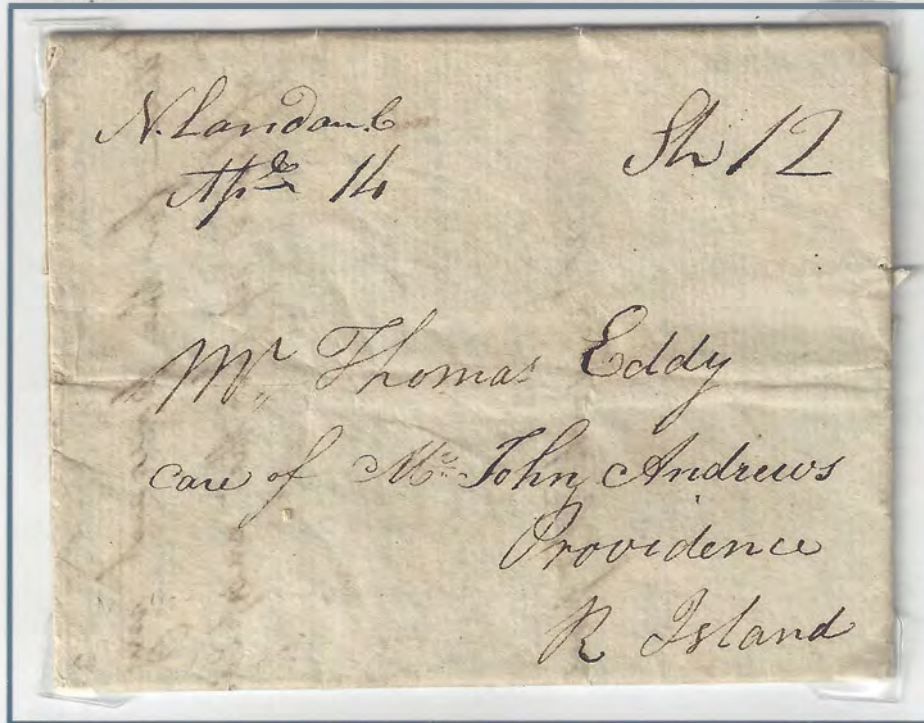 N. Landon. C
Apl 14
Sh 12
Mr, Thomas Eddy
care of Mr John Andrews
Providence
R Island